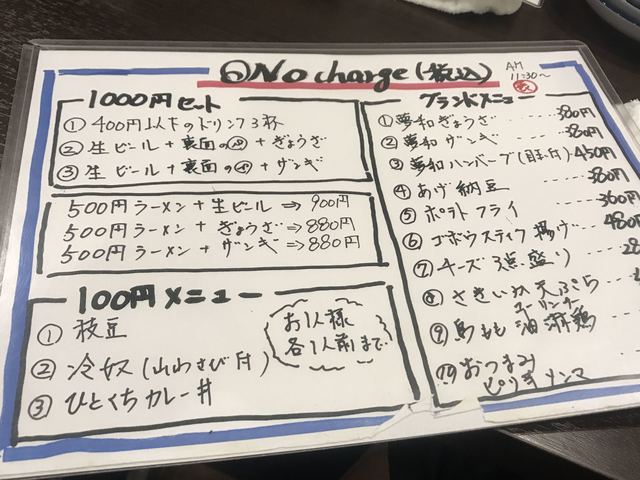 No charge (税込)
AM
11:30～
1000円セット
① 400円以下のドリンク3杯
② 生ビール + 裏面の + ぎょうざ
③ 生ビール + 裏面の + ザンギ
500円ラーメン + 生ビール ⇒ 900円
500円ラーメン + ぎょうざ ⇒ 880円
500円ラーメン + ザンギ ⇒ 880円
100円メニュー
① 枝豆
② 冷奴 (山わさび付)
③ ひとくちカレー丼
お1人様
各1人前まで
グランドメニュー
① 夢和ぎょうざ 380円
② 夢和ザンギ 380円
③ 夢和ハンバーグ (目玉付) 450円
④ あげ納豆 380円
⑤ ポテトフライ 360円
⑥ ゴボウスティク揚げ 480
⑦ チーズ3点盛り
⑧ さきいか天ぷら
ユーリンチー
⑨ 鳥もも油淋鶏
⑩ おつまみ
ピリ辛メンマ